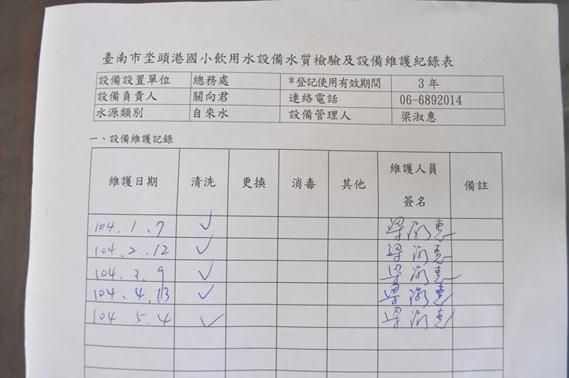 臺南市坔頭港國小飲用水設備水質檢驗及設備維護紀錄表
設備設置單位 總務處 *登記使用有效期間 3 年
設備負責人 關向君 連絡電話 06-6892014
水源類別 自來水 設備管理人 梁淑惠
一、設備維護記錄
維護日期 清洗 更換 消毒 其他 維護人員 簽名 備註
104.1.7 ✓ 梁淑惠
104.2.12 ✓ 梁淑惠
104.3.9 ✓ 梁淑惠
104.4.13 ✓ 梁淑惠
104.5.4 ✓ 梁淑惠